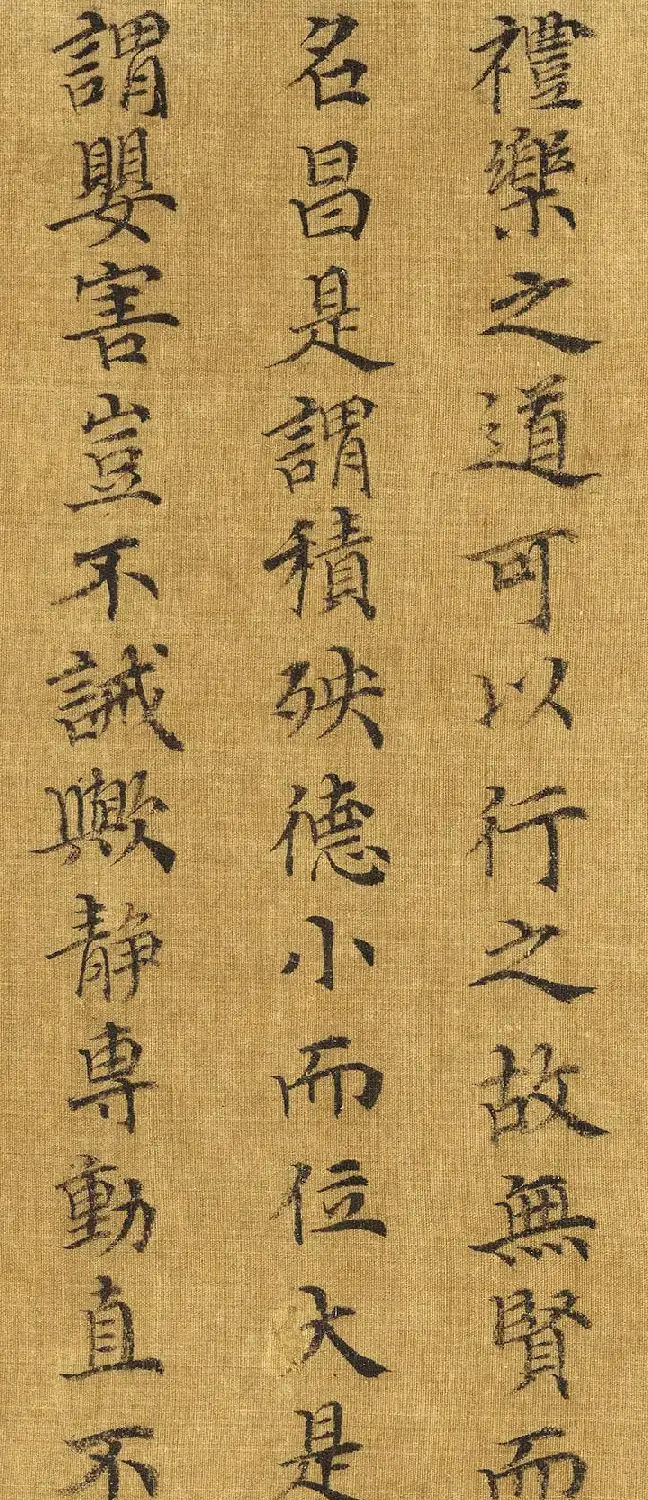 禮樂之道可以行之故無賢而
名昌是謂積殃德小而位大是
謂嬰害豈不誡歟靜專動直不